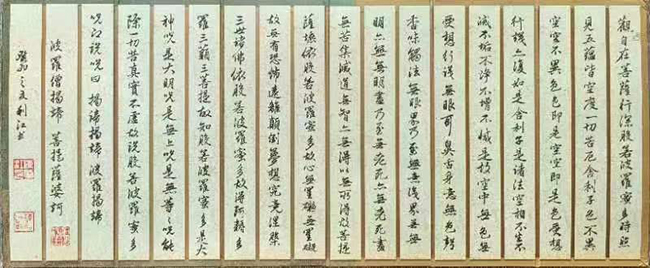 觀自在菩薩行深般若波羅蜜多時照
見五蘊皆空度一切苦厄舍利子色不異
空空不異色色即是空空即是色受想
行識亦復如是舍利子是諸法空相不生不
滅不垢不淨不增不減是故空中無色無
受想行識無眼耳鼻舌身意無色聲
香味觸法無眼界乃至無意識界無無
明亦無無明盡乃至無老死亦無老死盡
無苦集滅道無智亦無得以無所得故菩提
薩埵依般若波羅蜜多故心無罣礙無罣礙
故無有恐怖遠離顛倒夢想究竟涅槃
三世諸佛依般若波羅蜜多故得阿耨多
羅三藐三菩提故知般若波羅蜜多是大
神咒是大明咒是無上咒是無等々咒能
除一切苦真實不虛故說般若波羅蜜多
咒即說咒曰 揭諦揭諦 波羅揭諦
波羅僧揭諦 菩提薩婆訶
癸卯之夏利江書